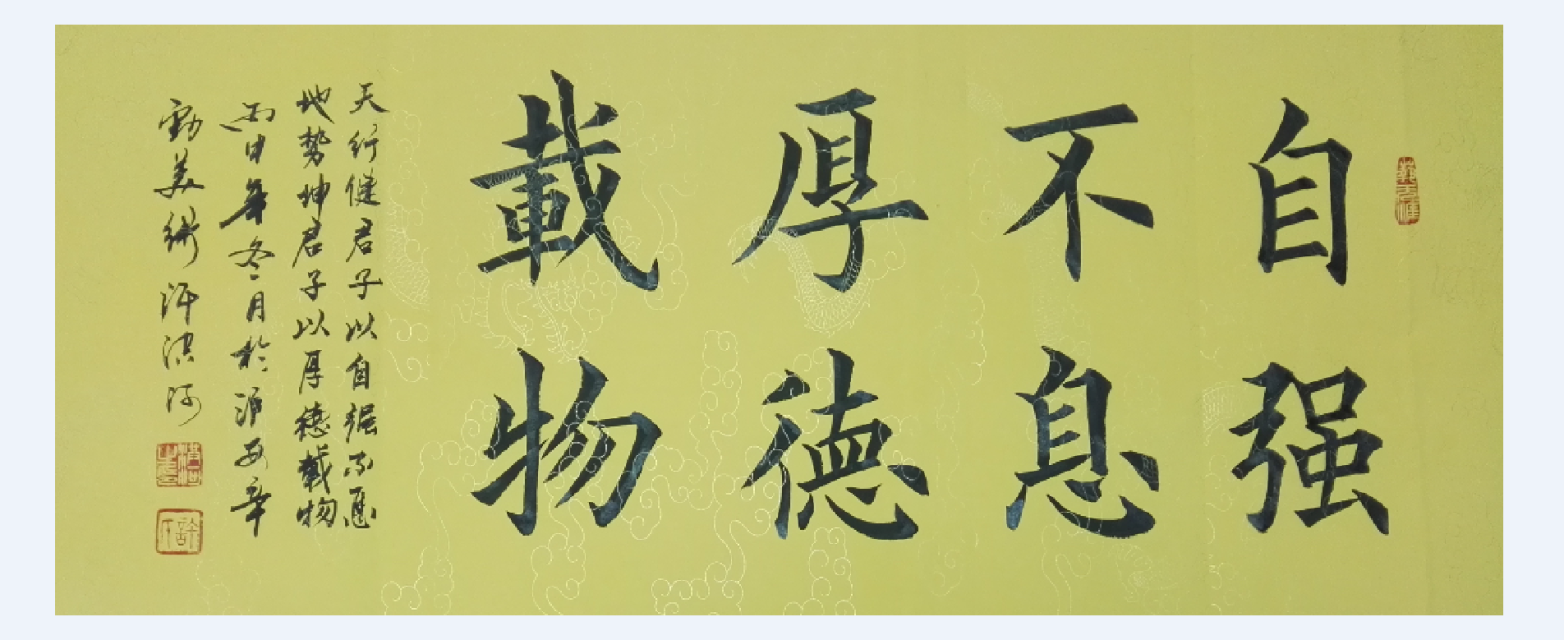 自强
不息
厚德
載物
天行健君子以自强不息
地勢坤君子以厚德載物
丙申年冬月於淮安
美術許洪河